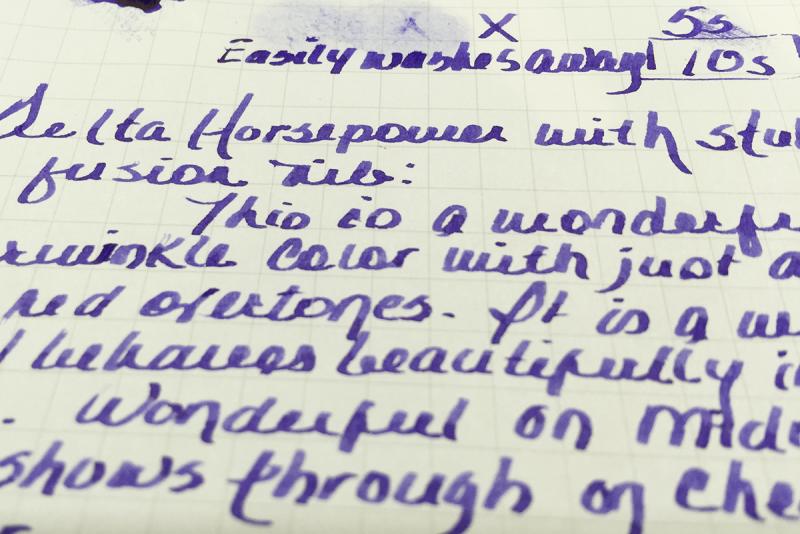 X 5s
Easily washes away! 10s
Delta Horsepower with stu
fusion nib:
This is a wonderfu
rwinkle color with just a
red overtones. It is a w
l behaves beautifully i
. Wonderful on Mid
shows through on che